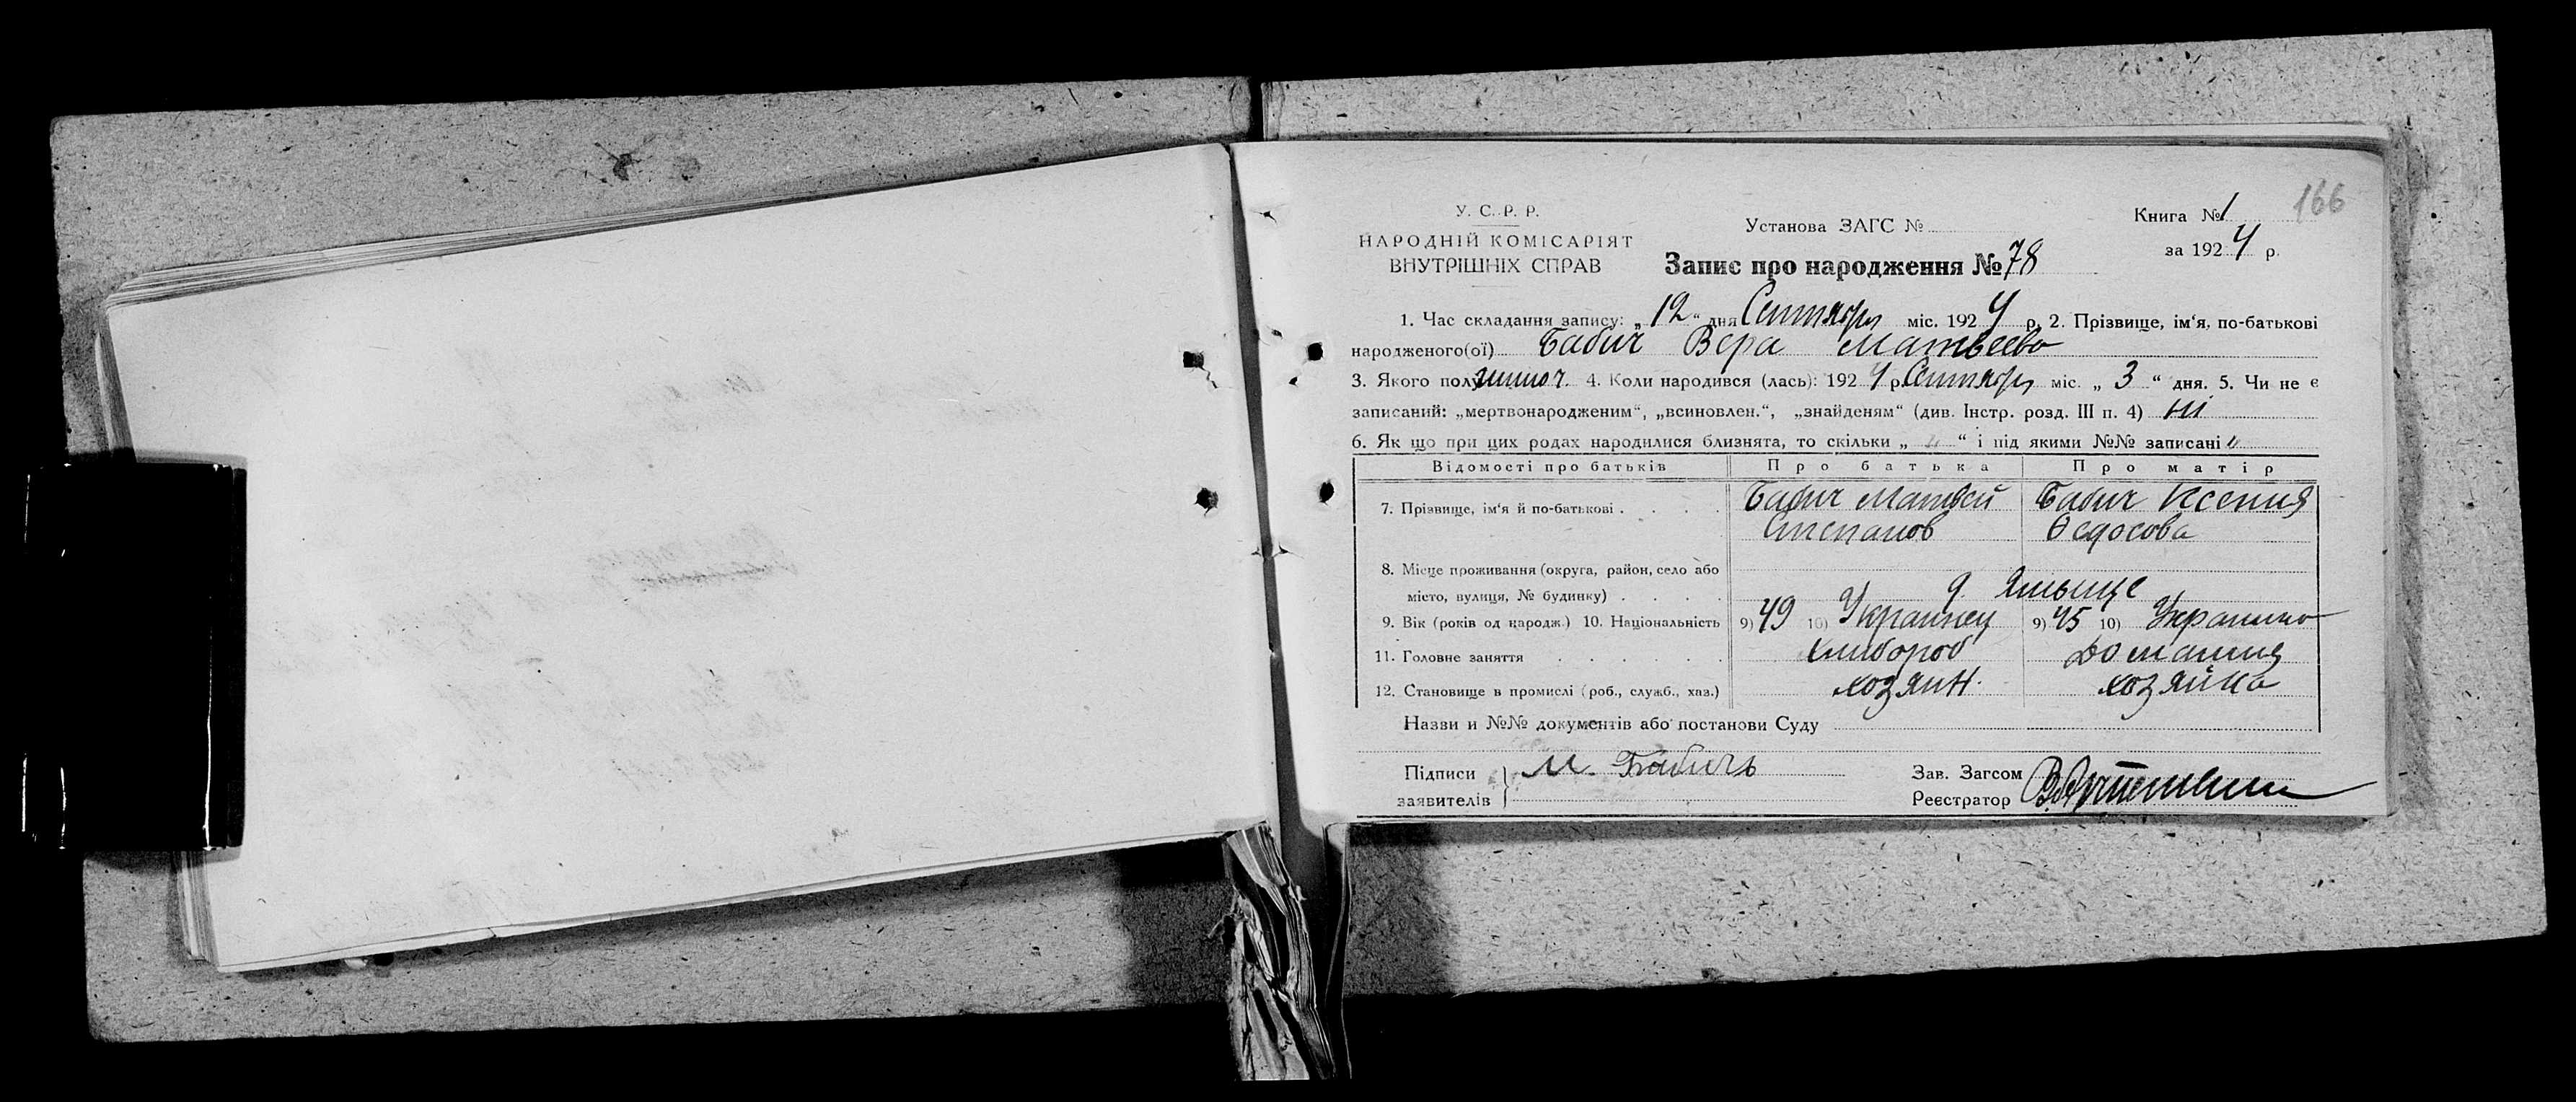 166
У. С. Р. Р.
НАРОДНІЙ КОМІСАРІЯТ
ВНУТРІШНІХ СПРАВ
Установа ЗАГС №
Запис про народження № 78
Книга № 1
за 1924 р.
1. Час складання запису: „12“ дня Сентября міс. 1924 р. 2. Прізвище, ім'я, по-батькові
народженого(ої) Бабич Вера Матвеева
3. Якого полу жиноч. 4. Коли народився (лась): 1924 р. Сентября міс. „3“ дня. 5. Чи не є
записаний: „мертвонародженим“, „всиновлен.“, „знайденям“ (див. Інстр. розд. III п. 4) ні
6. Як що при цих родах народилися близнята, то скільки „ “ і під якими №№ записані
Відомості про батьків Про батька Про матір
7. Прізвище, ім'я й по-батькові . . . . Бабич Матвей Бабич Ксения
Степанов Федосова
8. Місце проживання (округа, район, село або
місто, вулиця, № будинку) . . . . д. Ямыще
9. Вік (років од народж.) 10. Національність 9) 49 10) Украинец 9) 45 10) Украинка
11. Головне заняття . . . . . . Хлибороб Домашня
12. Становище в промислі (роб., служб., хаз.) хозяин. хозяйка
Назви и №№ документів або постанови Суду
Підписи М. Бабичь Зав. Загсом
заявителів Реєстратор